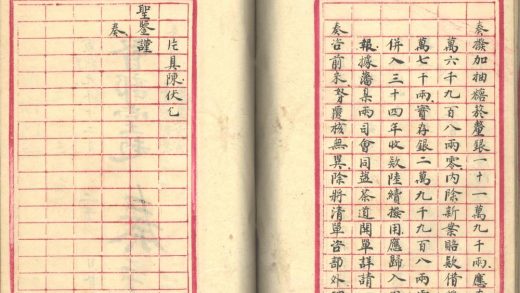 奏撥加抽糖菸釐銀一十一萬九千兩應
萬六千九百八兩零內除新案賠款借
萬七千兩實存銀二萬九千九百八兩
併入三十四年收款陸續接用應歸入
報據藩臬兩司會同鹽茶道開單詳請
奏咨前來臣覆核無異除將清單咨部外
片具陳伏乞
聖鑒謹
奏